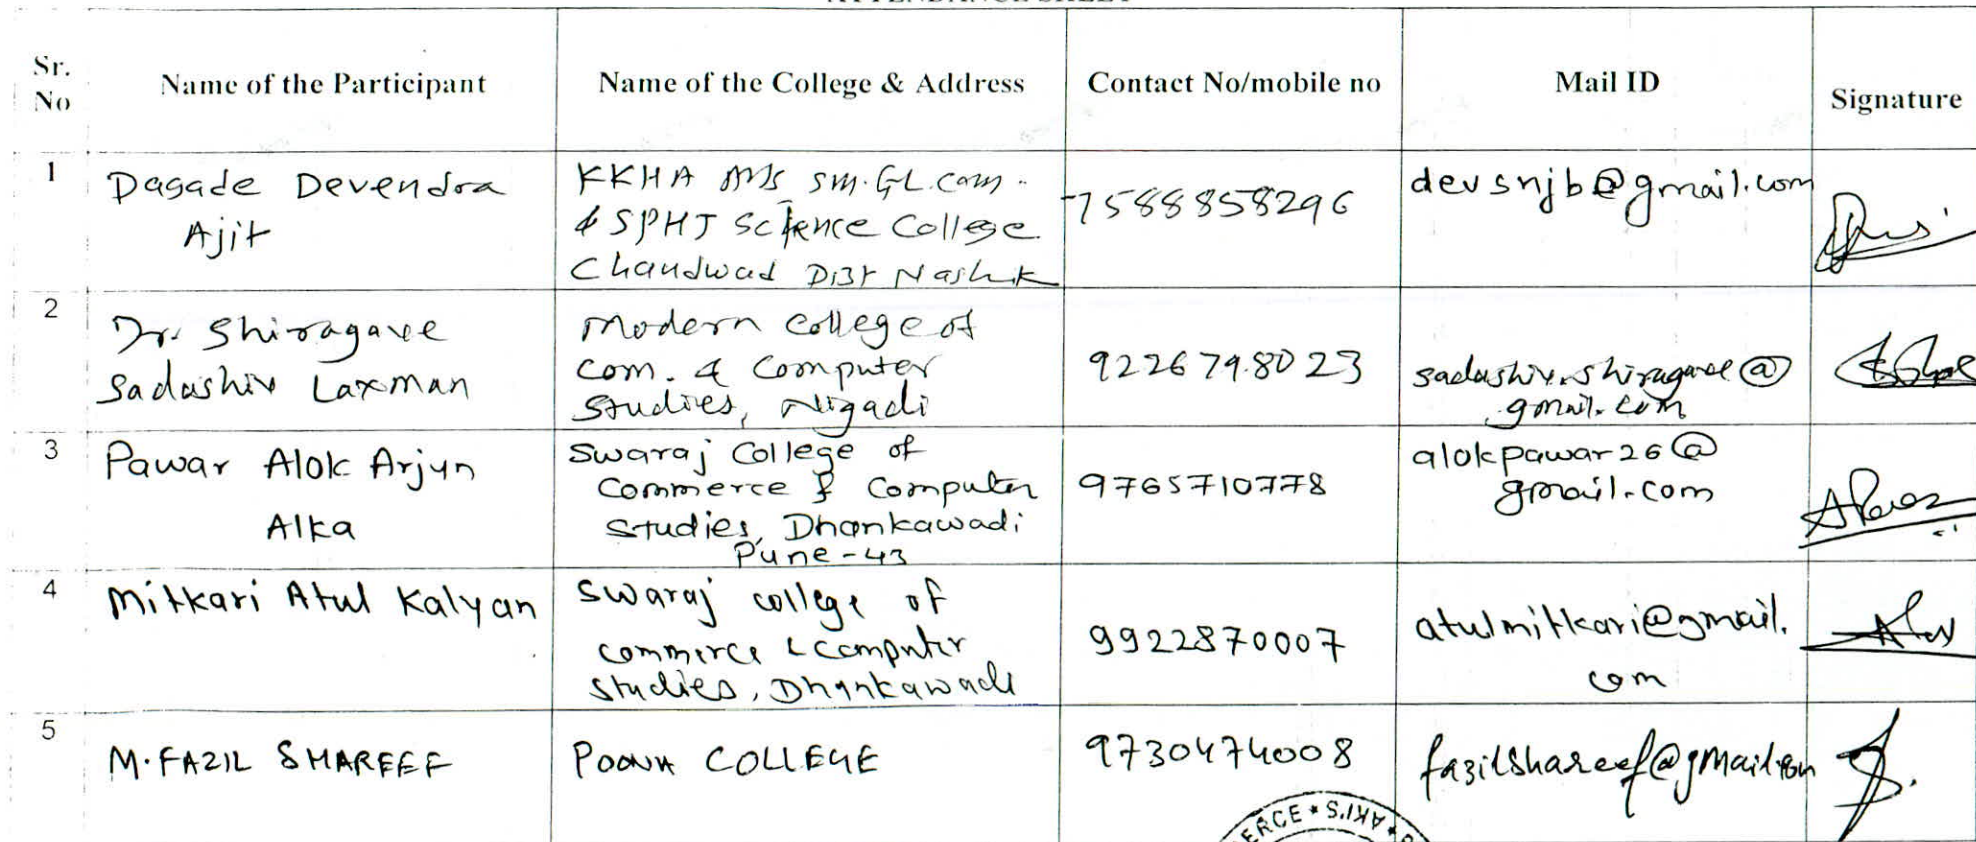 ATTENDANCE SHEET
Sr. No
Name of the Participant
Name of the College & Address
Contact No/mobile no
Mail ID
Signature
1
Dagade Devendra
Ajit
KKHA SM.GL.com.
& SPHJ Science College
Chandwad Dist Nashik
7588858296
devsnjb@gmail.com
2
Dr. Shiragave
Sadashiv Laxman
Modern College of
Com. & Computer
Studies, Nigadi
9226798023
sadashiv.shiragave@
gmail.com
3
Pawar Alok Arjun
Alka
Swaraj College of
Commerce & Computer
Studies, Dhankawadi
Pune-43
9765710778
alokpawar26@
gmail.com
4
Mitkari Atul Kalyan
Swaraj college of
commerce & computer
studies, Dhankawadi
9922870007
atulmitkari@gmail.
com
5
M.FAZIL SHAREEF
POONA COLLEGE
9730474008
fazilshareef@gmail.com
ERCE * AKI'S *